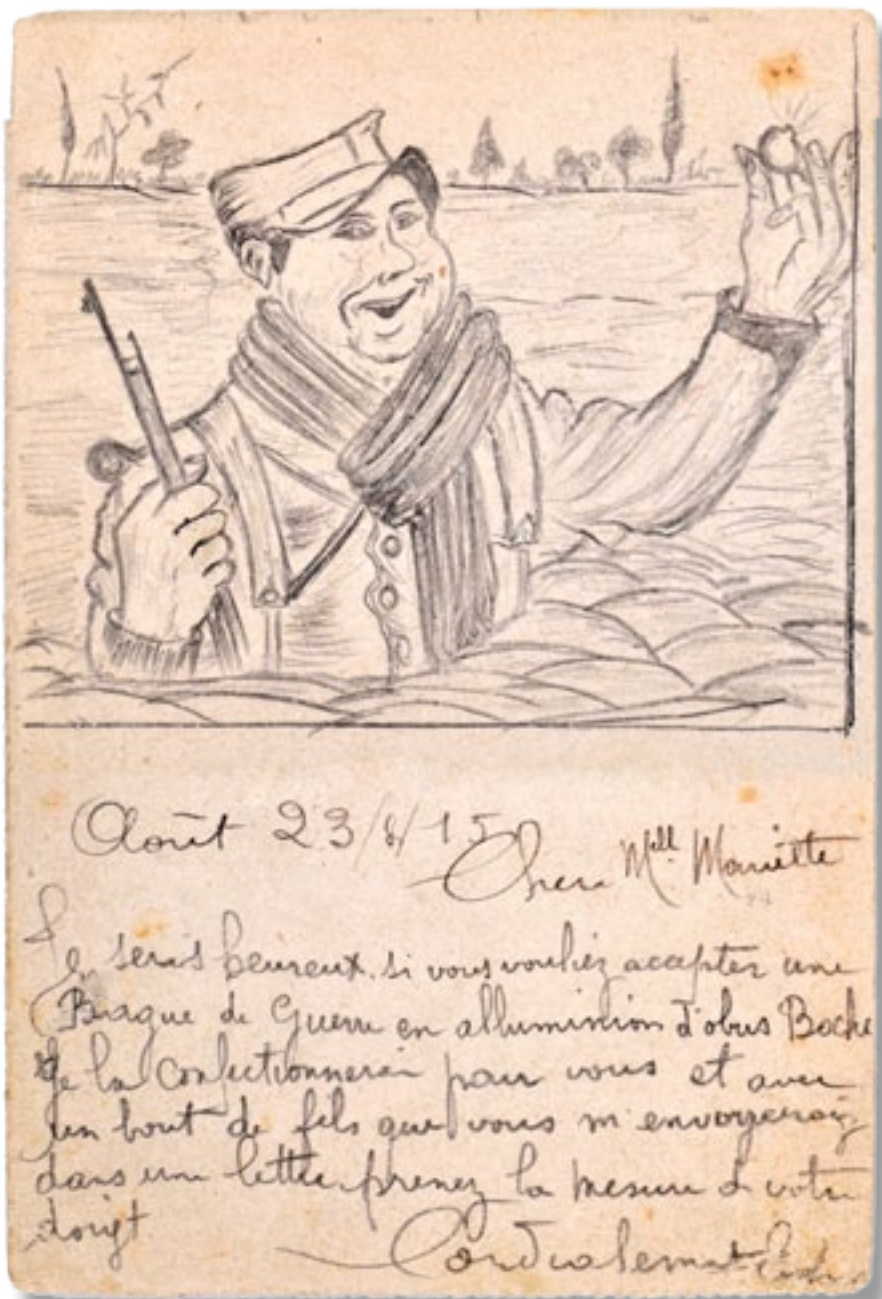 Août 23/8/15
Cher Mll Mariette
Je serais heureux si vous vouliez accepter une
Bague de Guerre en alluminion d'obus Boche
Je la confectionnerai pour vous et avec
un bout de fils que vous m'envoyeraiz
dans une lettre prenez la mesure de votre
doigt
Cordialement